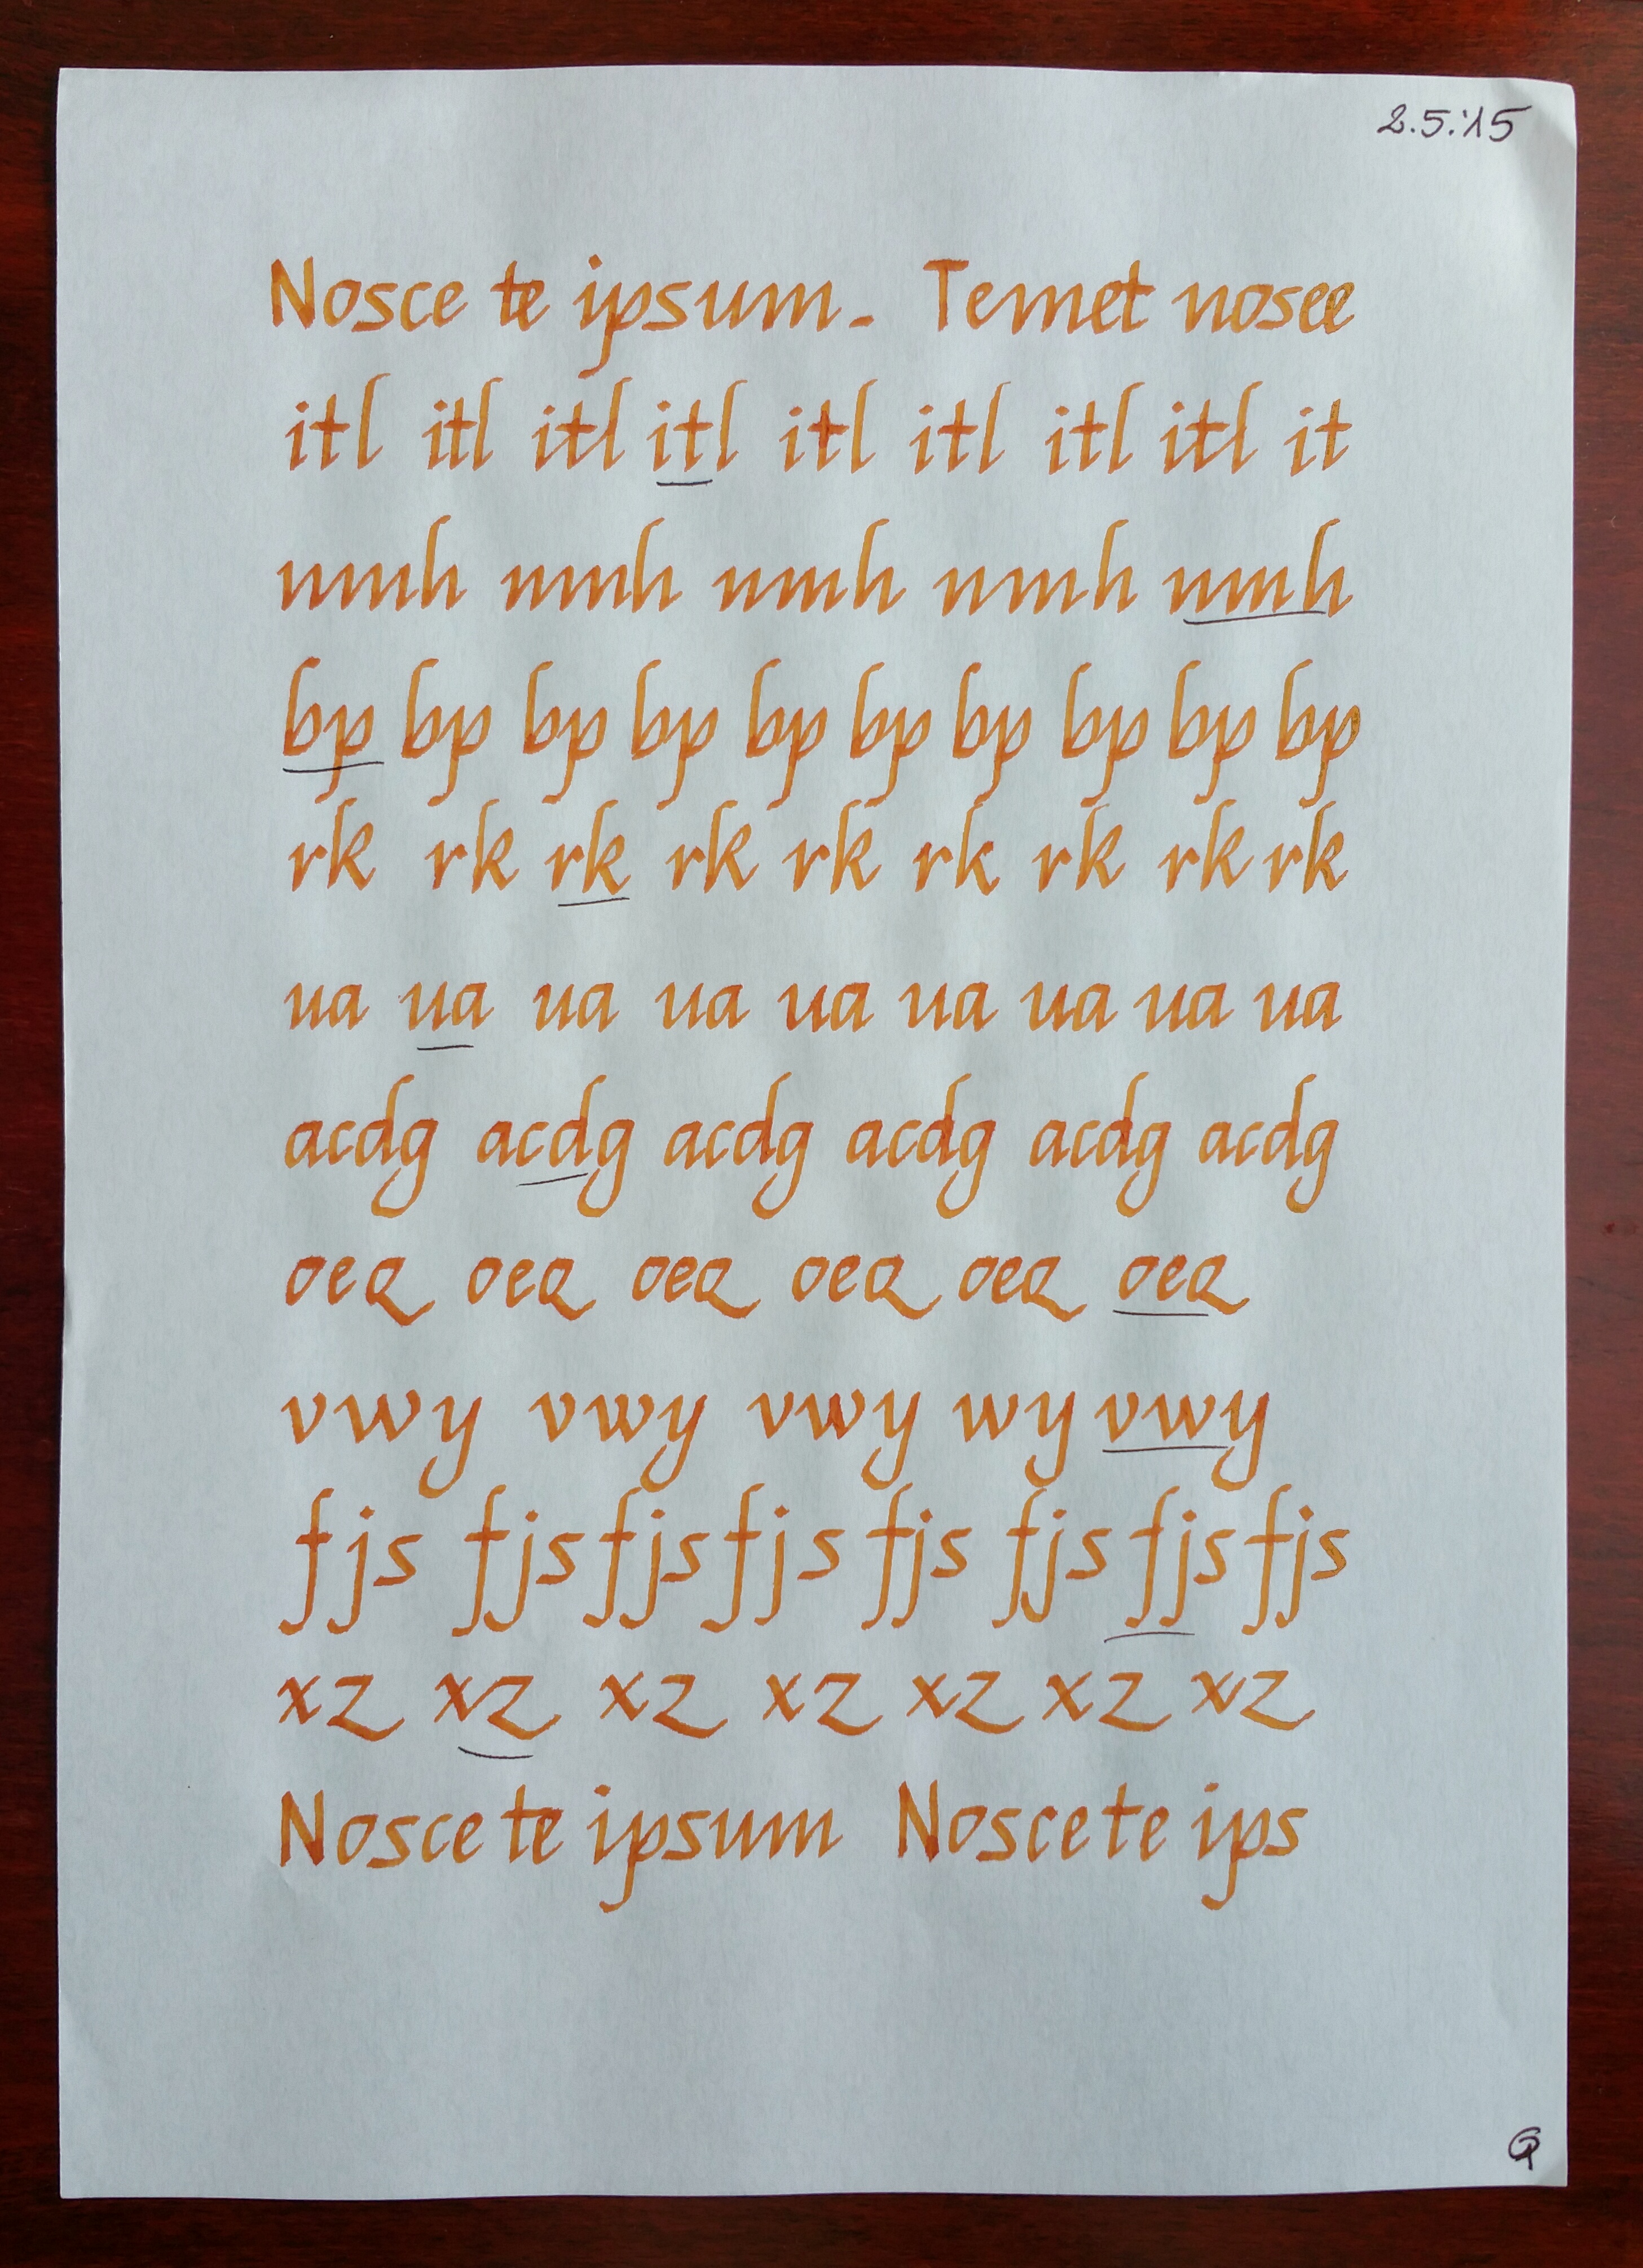 2.5.'15
Nosce te ipsum. Temet nosce
itl itl itl itl itl itl itl itl it
nmh nmh nmh nmh nmh
bp bp bp bp bp bp bp bp bp bp
rk rk rk rk rk rk rk rk rk
ua ua ua ua ua ua ua ua ua
acdg acdg acdg acdg acdg acdg
oeq oeq oeq oeq oeq oeq
vwy vwy vwy wy vwy
fjs fjs fjs fjs fjs fjs fjs fjs
xz xz xz xz xz xz xz
Nosce te ipsum Nosce te ips